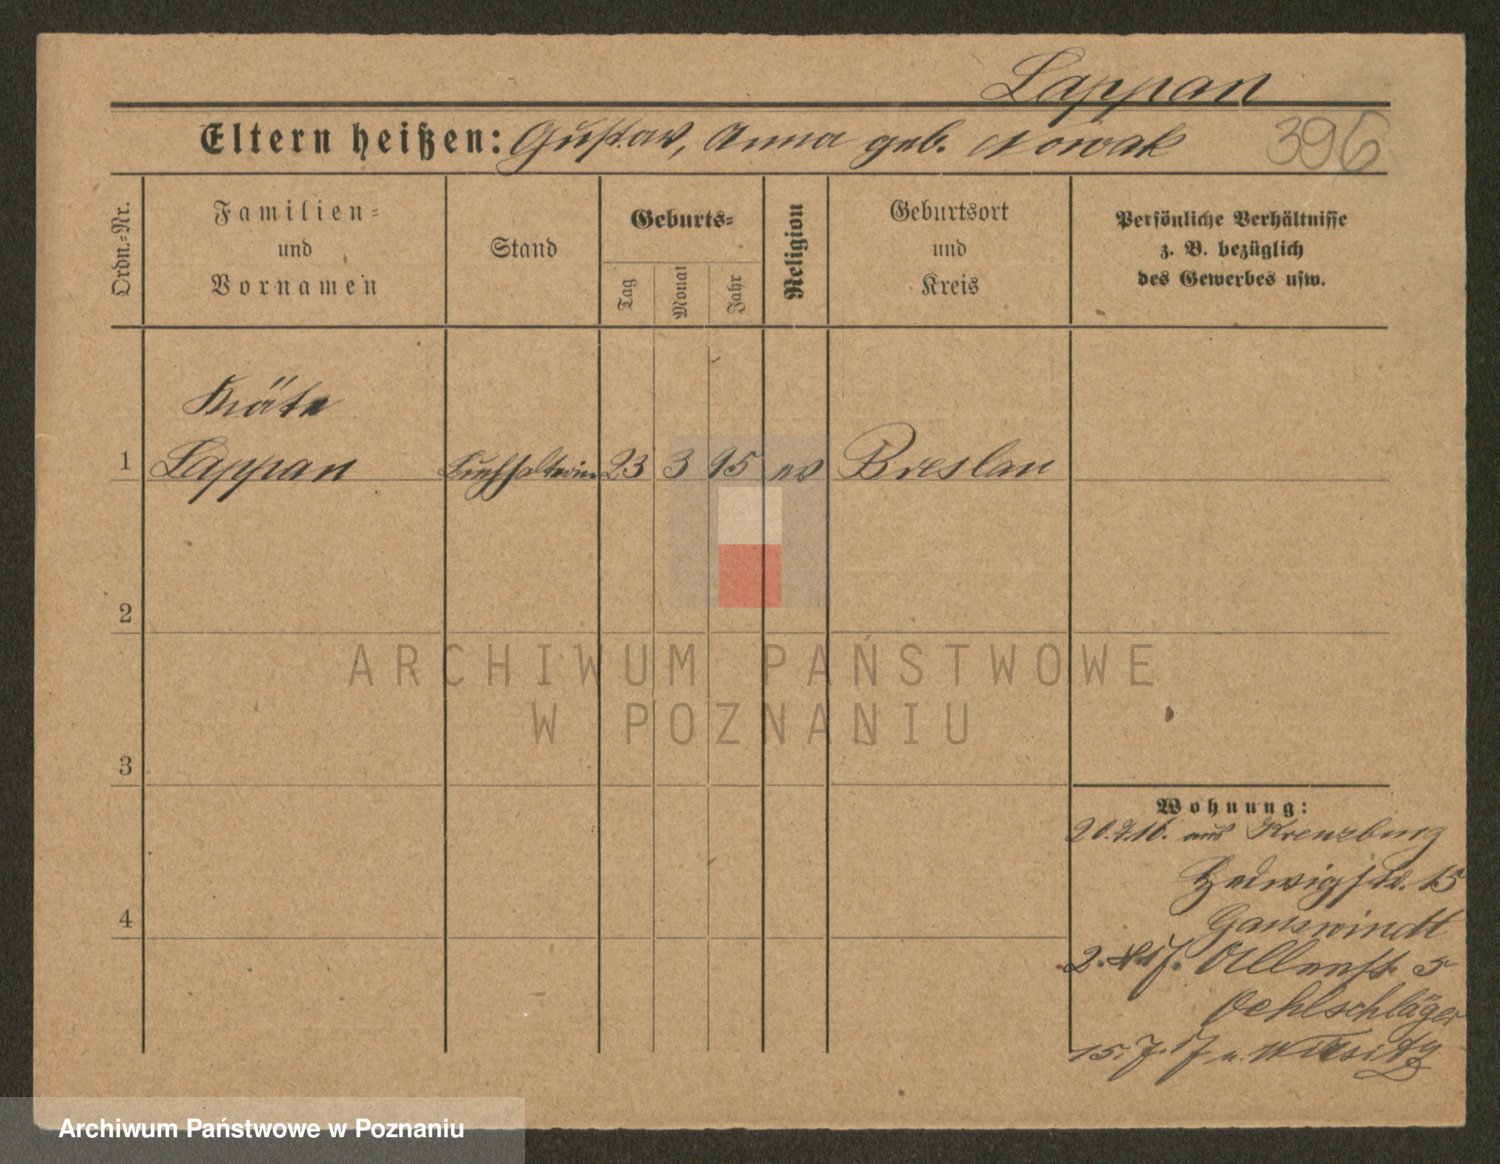 Lappan
Eltern heißen: Gustav, Anna geb. Nowak
396
Ordn.=Nr.
Familien=
und
Vornamen
Stand
Geburts=
Tag
Monat
Jahr
Religion
Geburtsort
und
Kreis
Persönliche Verhältnisse
z. B. bezüglich
des Gewerbes usw.
Käte
1 Lappan Buchhalterin 23 3 95 ev Breslau
2
3
4
Wohnung:
aus Kreuzburg
Hedwigstr. 15
Ganswindt
5
Oehlschläger
15. 7. 17 n. Wirsitz
ARCHIWUM PAŃSTWOWE
W POZNANIU
Archiwum Państwowe w Poznaniu